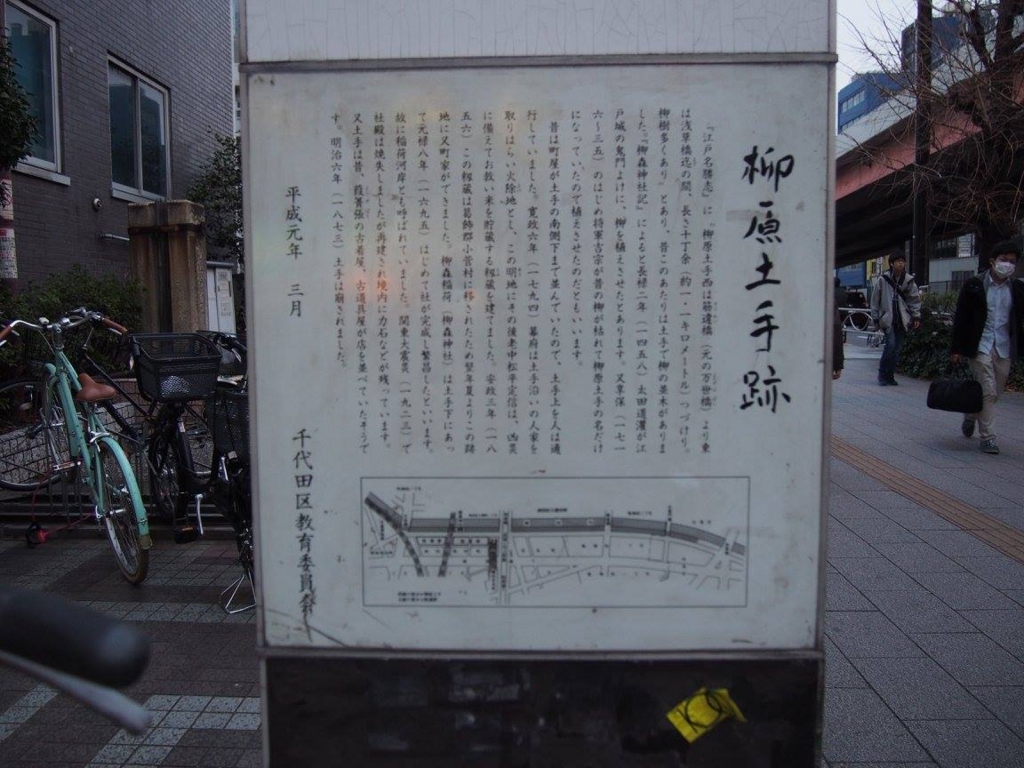 柳原土手跡
『江戸名勝志』に「柳原土手西は筋違橋（元の万世橋）より東
は浅草橋迄の間、長さ十丁余（約一・一キロメートル）つづけり。
柳樹多くあり」とあり、昔このあたりは土手で柳の並木がありま
した。『柳森神社記』によると長禄二年（一四五八）太田道灌が江
戸城の鬼門よけに、柳を植えさせたとあります。又享保（一七一
六～三五）のはじめ将軍吉宗が昔の柳が枯れて柳原土手の名だけ
になっていたので植えさせたのだともいいます。
昔は町屋が土手の南側下まで並んでいたので、土手上を人は通
行していました。寛政六年（一七九四）幕府は土手沿いの人家を
取りはらい火除地とし、この明地にその後老中松平定信は、凶災
に備えてお救い米を貯蔵する籾蔵を建てました。安政三年（一八
五六）この籾蔵は葛飾郡小菅村に移されたため翌年夏よりこの跡
地に又町家ができました。柳森稲荷（柳森神社）は土手下にあっ
て元禄八年（一六九五）はじめて社が完成し繁昌したといいます。
故に稲荷河岸とも呼ばれていました。関東大震災（一九二三）で
社殿は焼失しましたが再建され境内に力石などが残っています。
又土手は昔、葭簀張の古着屋、古道具屋が店を並べていたそうで
す。明治六年（一八七三）土手は崩されました。
平成元年　三月
千代田区教育委員会